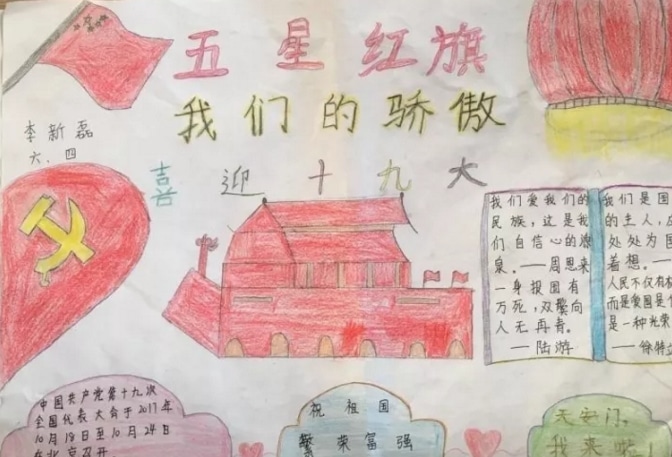 五星红旗
我们的骄傲
李新磊
六、四
喜迎十九大
我们爱我们的
民族，这是我
们自信心的源
泉。——周恩来
一身报国有
万死，双鬓向
人无再青。
——陆游
我们是国
的主人，应
处处为国
着想。——
人民不仅有权
而是爱国是
是一种光荣
——徐特立
中国共产党第十九次
全国代表大会于2017年
10月18日至10月24日
在北京召开
祝祖国
繁荣富强
天安门，
我来啦！